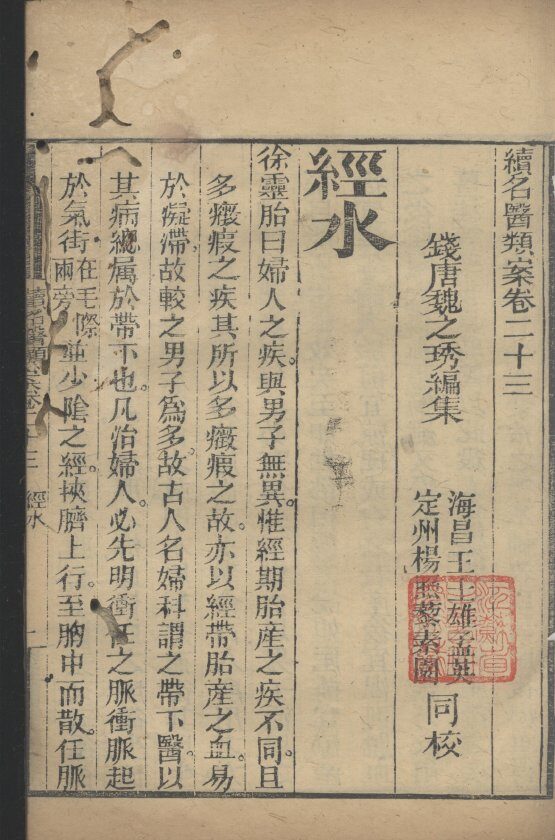 續名醫類案卷二十三
錢唐魏之琇編集
海昌王士雄孟英
定州楊照藜素園
同校
經水
徐靈胎曰婦人之疾與男子無異惟經期胎產之疾不同且
多癥瘕之疾其所以多癥瘕之故亦以經帶胎產之血易
於凝滯故較之男子為多故古人名婦科謂之帶下醫以
其病總属於帶下也凡治婦人必先明衝任之脈衝脈起
於氣街在毛際兩旁並少陰之經挾臍上行至胸中而散任脈
續名醫類案卷二十三 經水 一